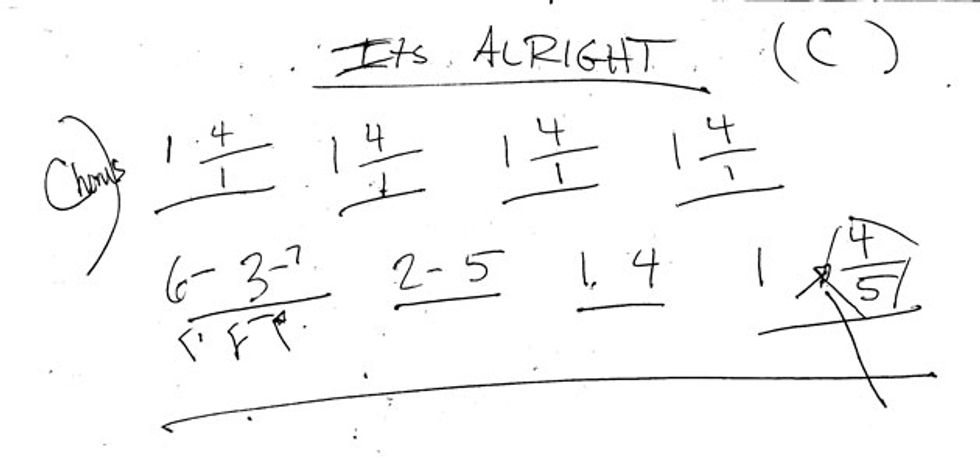 Its ALRIGHT (C)
Chorus) 1 4/1 1 4/1 1 4/1 1 4/1
6- 3-7 2- 5 1 4 1 4/5